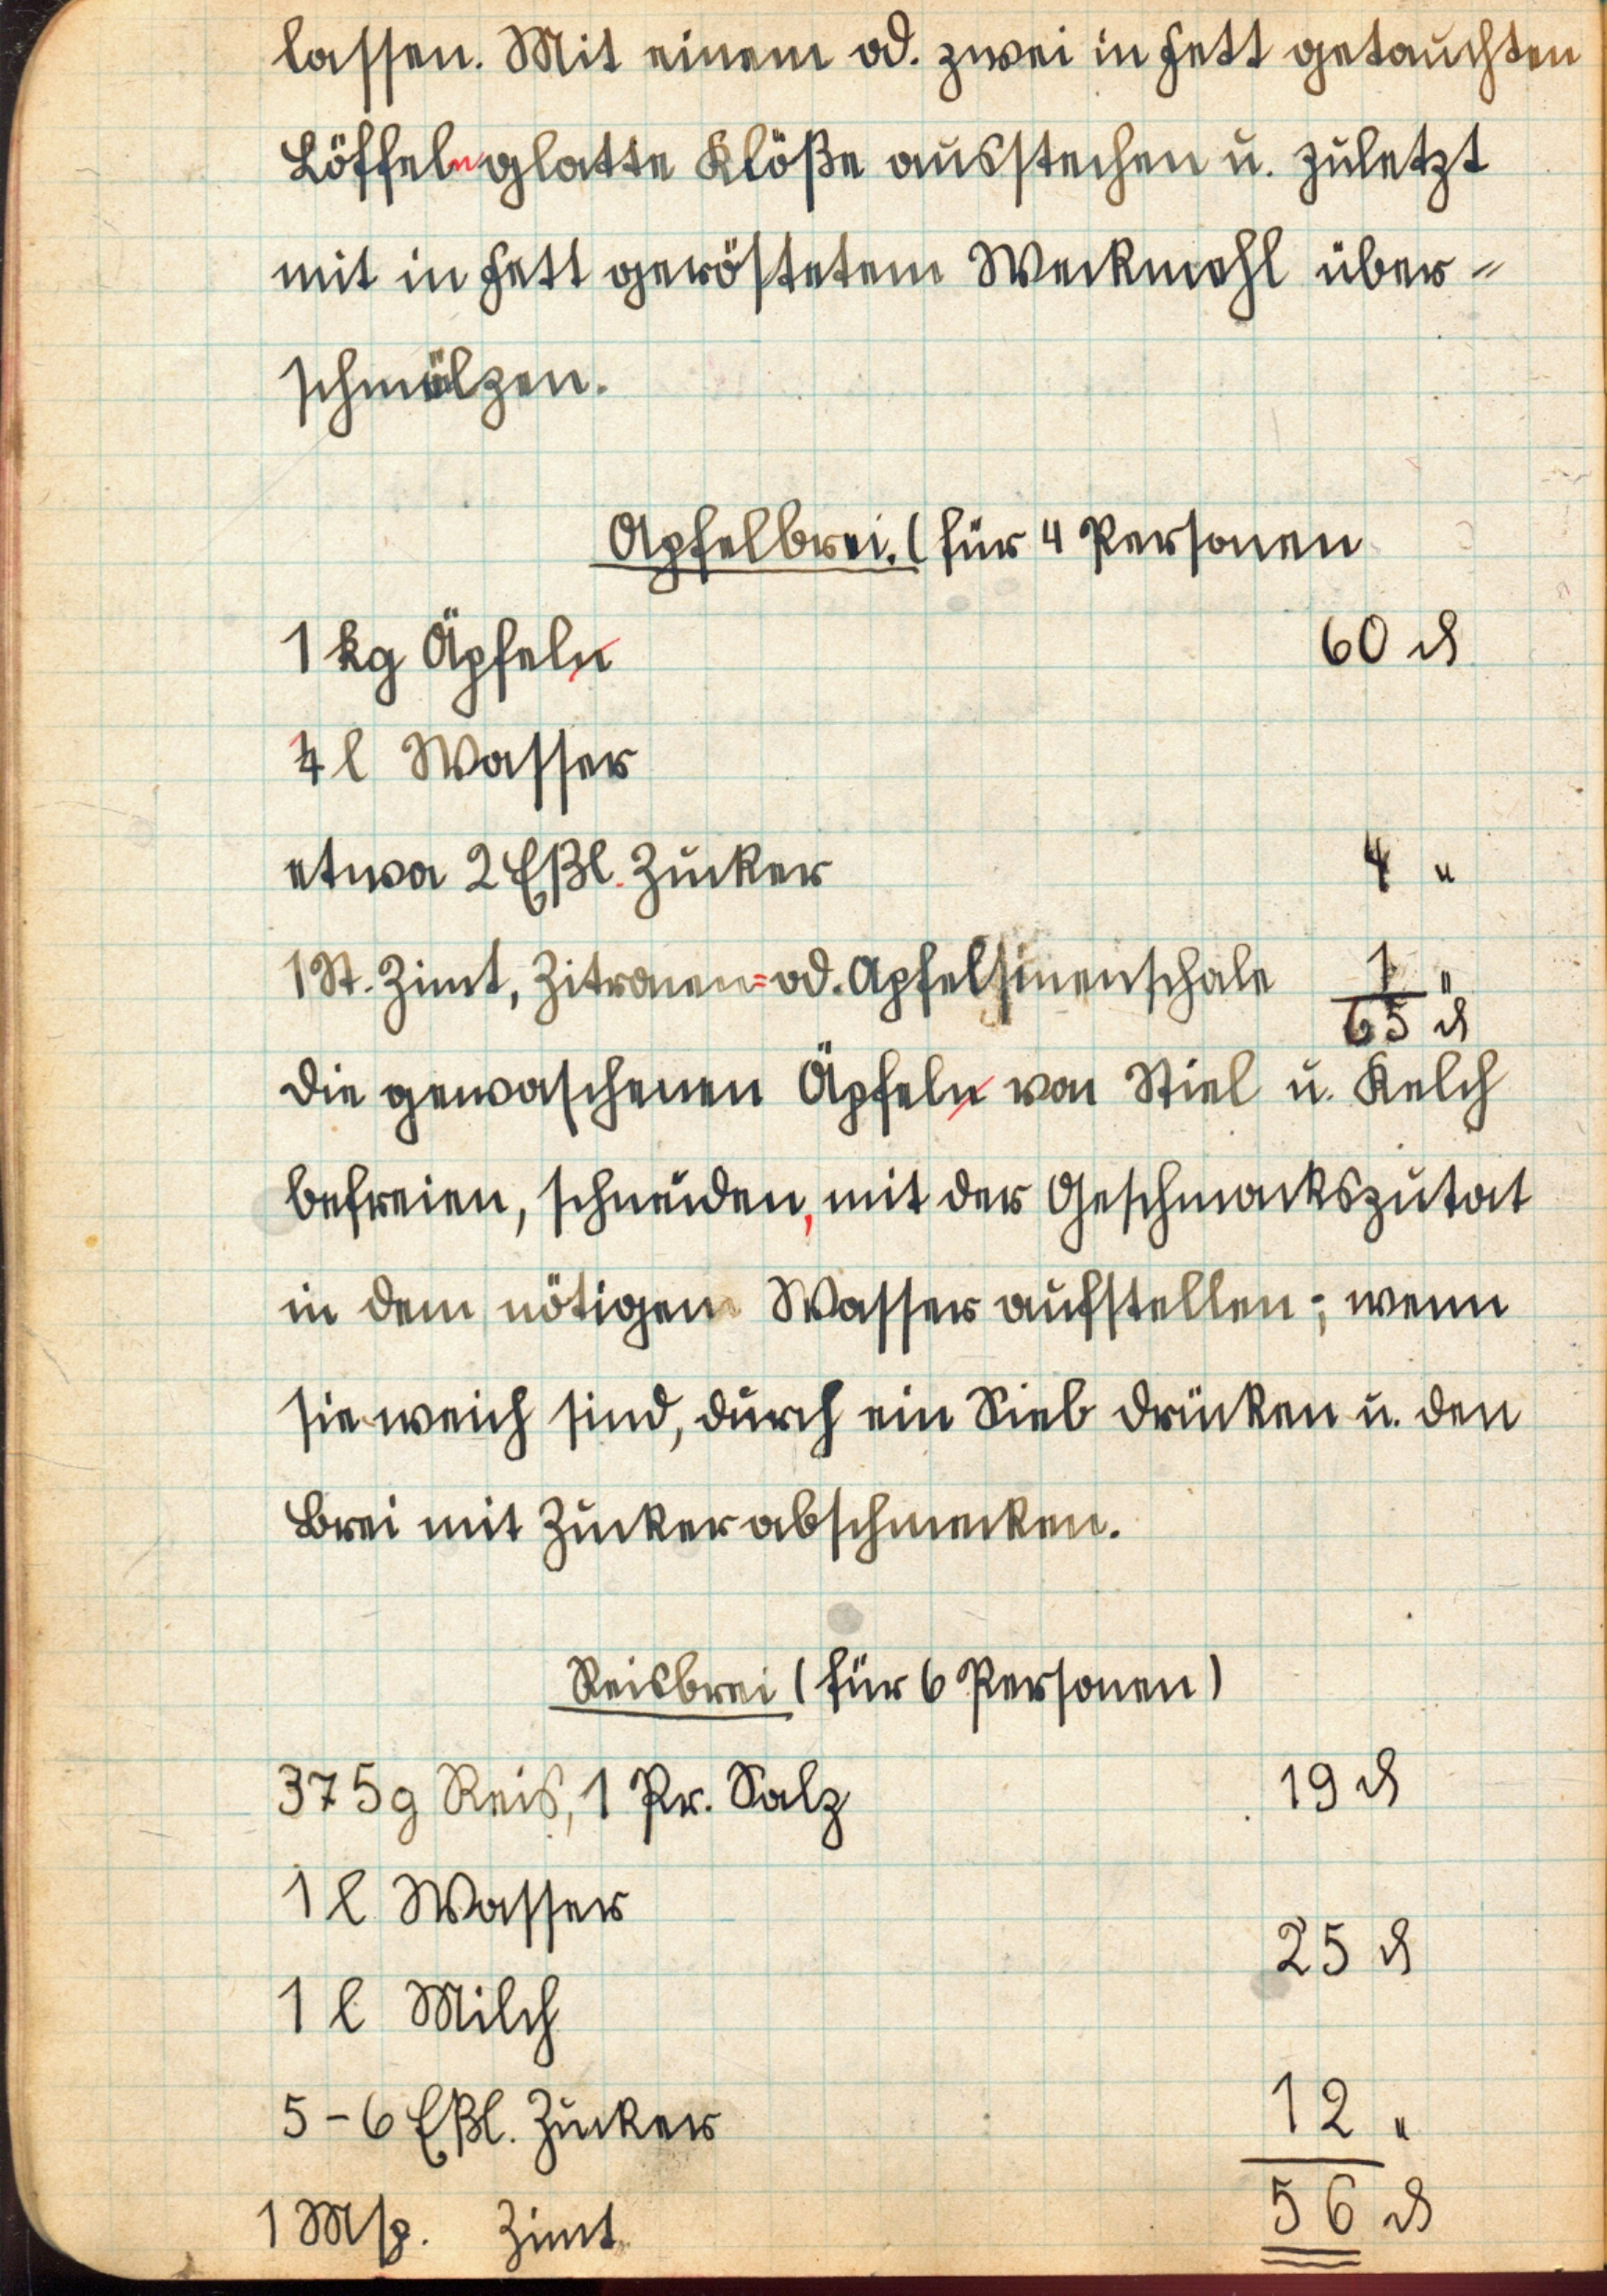 lassen. Mit einem od. zwei in Fett getauchten
Löffeln glatte Klöße ausstechen u. zuletzt
mit in Fett geröstetem Weckmehl über-
schmälzen.
Apfelbrei. (für 4 Personen
1 kg Äpfeln 60 ₰
1/4 l Wasser
etwa 2 Eßl. Zucker 4 "
1 St. Zimt, Zitronen= od. Apfelsinenschale 1 "
65 ₰
Die gewaschenen Äpfeln von Stiel u. Kelch
befreien, schneiden, mit der Geschmackszutat
in dem nötigen Wasser aufstellen; wenn
sie weich sind, durch ein Sieb drücken u. den
Brei mit Zucker abschmecken.
Reisbrei (für 6 Personen)
375 g Reis, 1 Pr. Salz 19 ₰
1 l Wasser
25 ₰
1 l Milch
5-6 Eßl. Zucker 12 "
1 Msp. Zimt 56 ₰